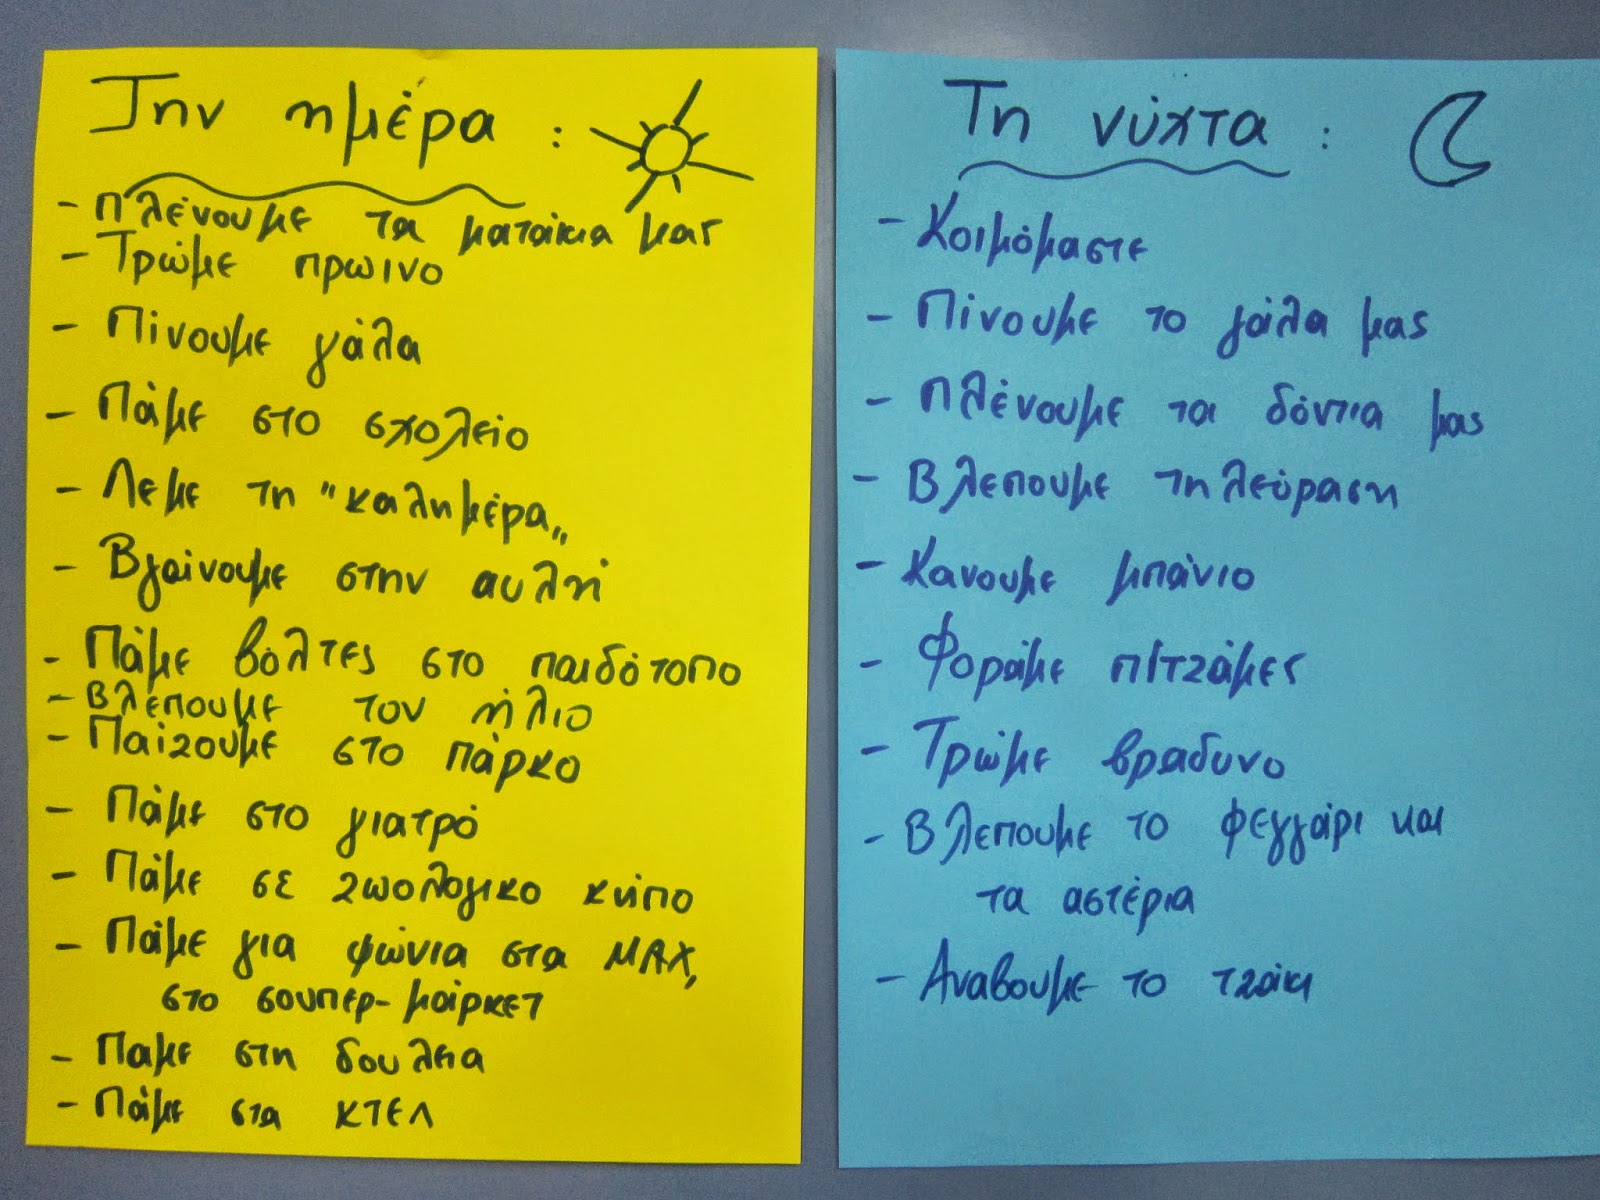 Την ημέρα :
- Πλένουμε τα ματάκια μας
- Τρώμε πρωινο
- Πίνουμε γάλα
- Πάμε στο σχολείο
- Λεμε τη "καλημέρα„
- Βγαίνουμε στην αυλή
- Πάμε βόλτες στο παιδότοπο
- Βλέπουμε τον ήλιο
- Παίζουμε στο πάρκο
- Πάμε στο γιατρό
- Πάμε σε ζωολογικο κήπο
- Πάμε για ψώνια στα ΜΑΧ,
στο σουπερ-μάρκετ
- Παμε στη δουλεια
- Πάμε στα ΚΤΕΛ
Τη νύχτα :
- Κοιμόμαστε
- Πίνουμε το γάλα μας
- Πλένουμε τα δόντια μας
- Βλεπουμε τηλεόραση
- Κανουμε μπάνιο
- Φοράμε πιτζάμες
- Τρώμε βραδυνο
- Βλεπουμε το φεγγάρι και
τα αστέρια
- Αναβουμε το τζάκι